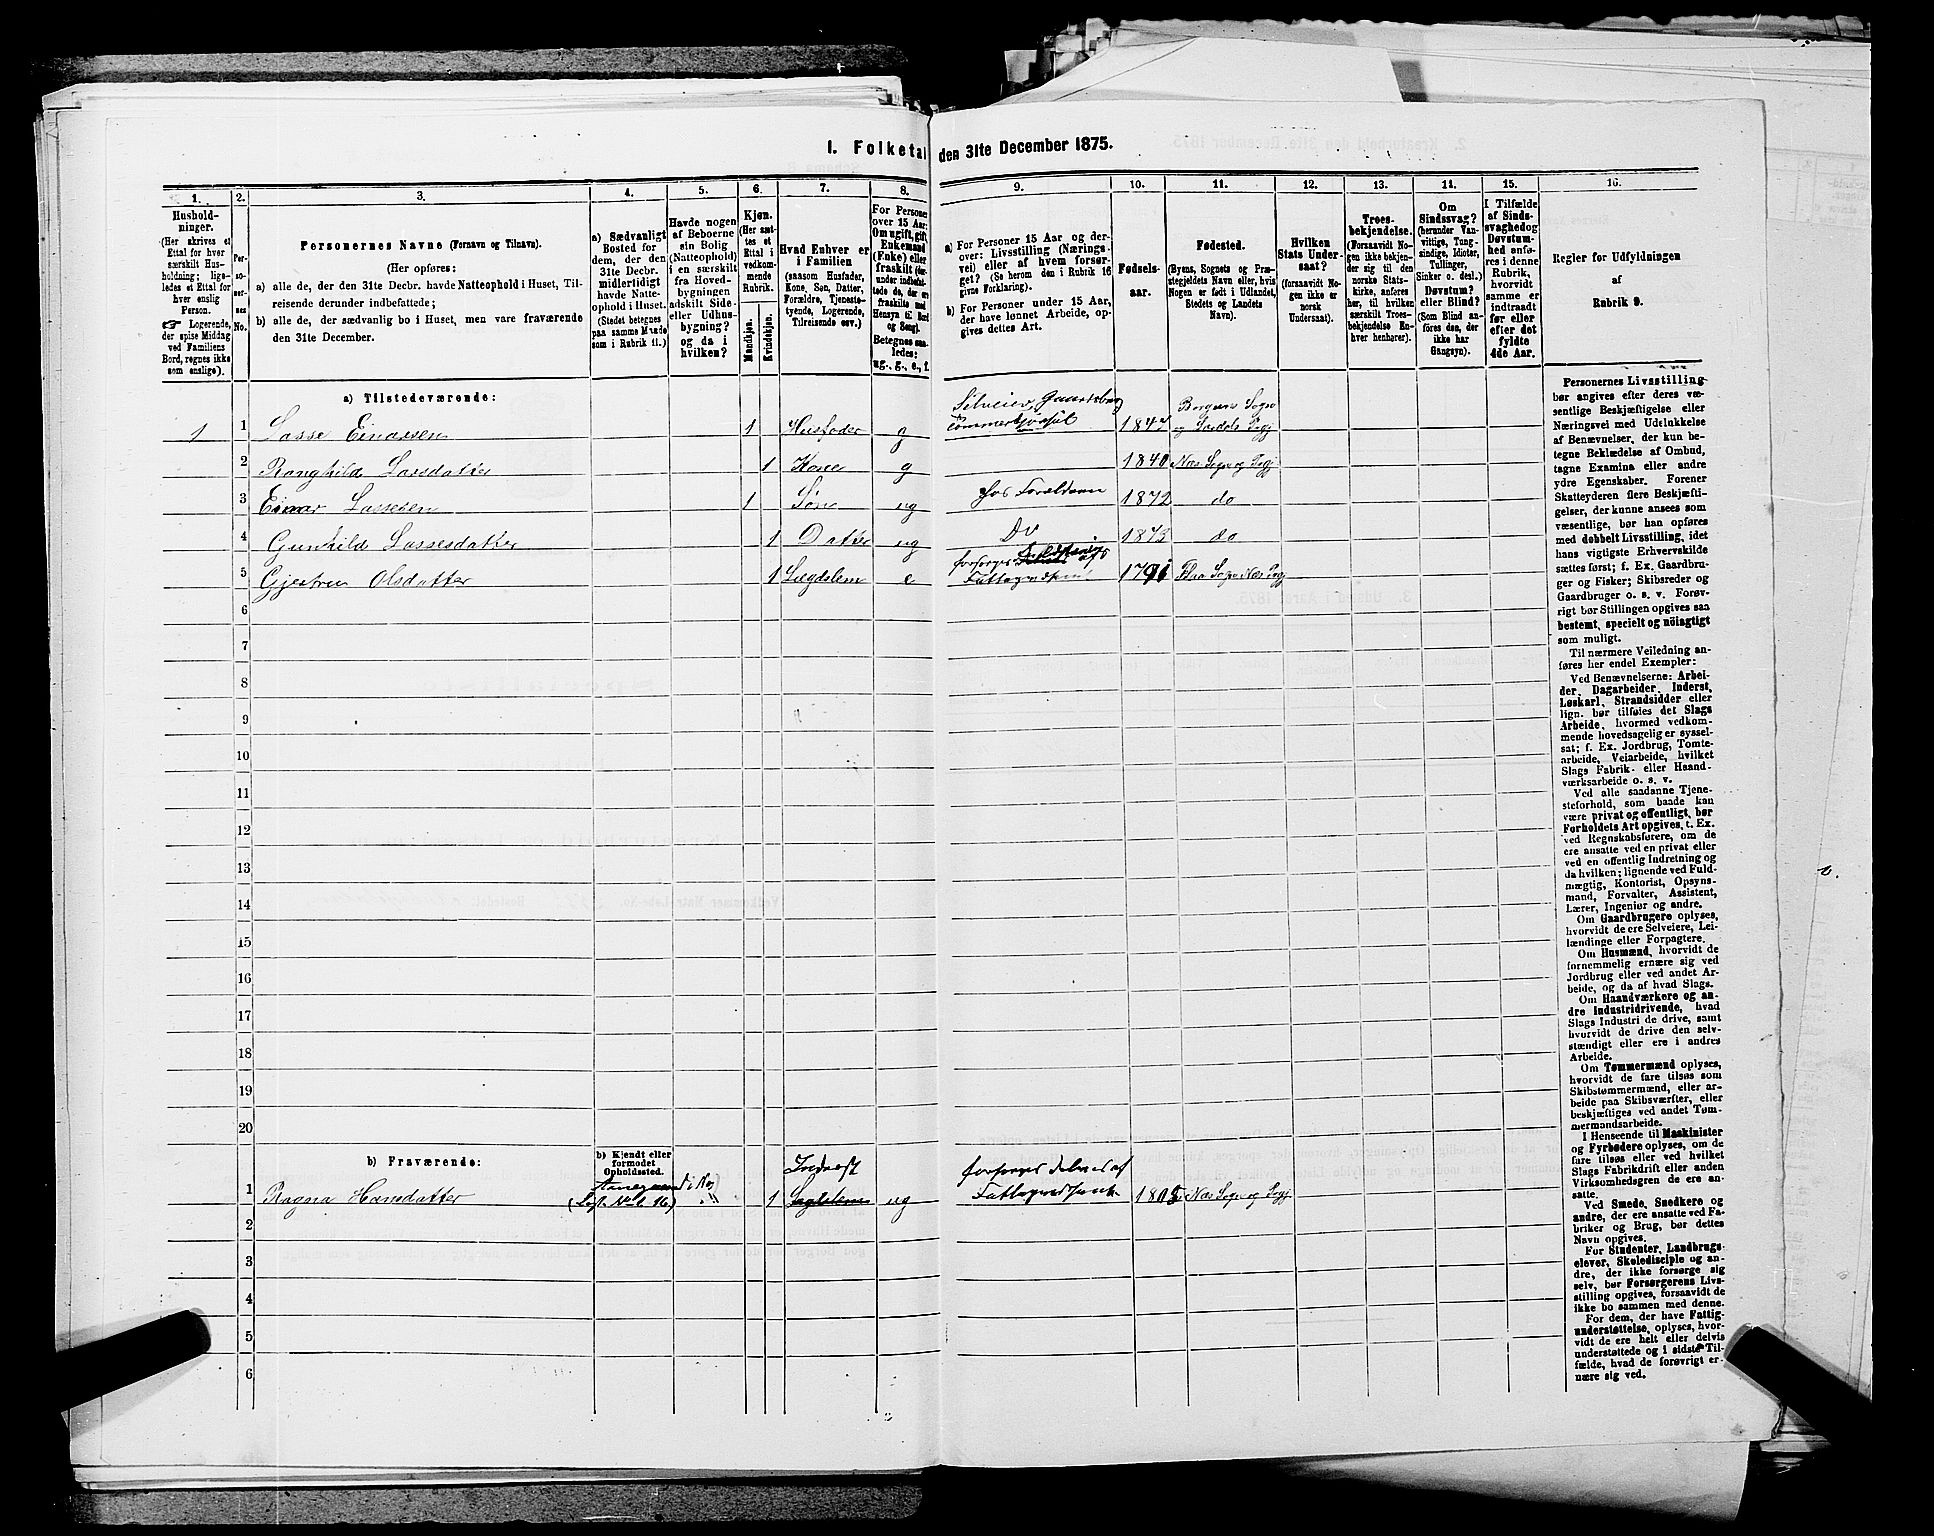 1. Folketal den 31te December 1875.
1.
2.
3.
4.
5.
6.
7.
8.
9.
10.
11.
12.
13.
14.
15.
16.
Hushold-
ninger.
(Her skrives et
Ettal for hver
særskilt Hus-
holdning; lige-
ledes et Ettal for
hver enslig
Person.
☞ Logerende,
der spise Middag
ved Familiens
Bord, regnes ikke
som enslige).
Per-
so-
ner-
nes
No.
Personernes Navne (Fornavn og Tilnavn).
(Her opføres:
a) alle de, der den 31te Decbr. havde Natteophold i Huset, Til-
reisende derunder indbefattede;
b) alle de, der sædvanlig bo i Huset, men vare fraværende
den 31te December.
a) Sædvanligt
Bosted for
dem, der den
31te Decbr.
midlertidigt
havde Natte-
ophold i Huset.
(Stedet betegnes
paa samme Maade
som i Rubrik 11.)
Havde nogen
af Beboerne
sin Bolig
(Natteophold)
i en særskilt
fra Hoved-
bygningen
adskilt Side-
eller Udhus-
bygning?
og da i
hvilken?
Kjøn.
(Her sæt-
tes et
Ettal i
vedkom-
mende
Rubrik.
Mandkjøn.
Kvindekjøn.
Hvad Enhver er
i Familien
(saasom Husfader,
Kone, Søn, Datter,
Forældre, Tjeneste-
tyende, Logerende,
Tilreisende osv.)
For Personer
over 15 Aar:
Om ugift, gift,
Enkemand
(Enke) eller
fraskilt (der-
under indbefat-
tede de, der ere
fraskilte med
Hensyn til Bord
og Seng).
Betegnes saa-
ledes:
ug., g., e., f.
a) For Personer 15 Aar og der-
over: Livsstilling (Nærings-
vei) eller af hvem forsør-
get? (Se herom den i Rubrik 16
givne Forklaring).
b) For Personer under 15 Aar,
der have lønnet Arbeide, op-
gives dettes Art.
Fødsels-
aar.
Fødested.
(Byens, Sognets og Præ-
stegjeldets Navn eller, hvis
Nogen er født i Udlandet,
Stedets og Landets
Navn).
Hvilken
Stats Under-
saat?
(forsaavidt No-
gen ikke er
norsk
Undersaat).
Troes-
bekjendelse.
(Forsaavidt No-
gen ikke bekjen-
der sig til den
norske Stats-
kirke, anføres
her, til hvilken
særskilt Troes-
bekjendelse En-
hver henhører).
Om
Sindssvag?
(herunder Van-
vittige, Tung-
sindige, Idioter,
Tullinger,
Sinker o. desl.)
Døvstum?
eller Blind?
(Som Blind an-
føres den, der
ikke har
Gangsyn).
I Tilfælde
af Sinds-
svaghed og
Døvstum-
hed anfø-
res i denne
Rubrik,
hvorvidt
samme er
indtraadt
før eller
efter det
fyldte
4de Aar.
Regler for Udfyldningen
af
Rubrik 9.
a) Tilstedeværende:
1 1 Lasse Einarsen 1 Husfader g Selveier, Gaardsbrug Tømmerkjørsel 1847 Borgunds Sogn og Lærdals Pgj
2 Ranghild Larsdatter 1 Kone g 1840 Næs Sogn og Pgj
3 Einar Lassesen 1 Søn ug hos Forældrene 1872 do
4 Gunhild Lassesdatter 1 Datter ug Do 1873 do
5 Gjestru Olsdatter 1 Lægdslem e forsørges af Fattigvæsenet 1791 Flaa Sogn Næs Pgj
6
7
8
9
10
11
12
13
14
15
16
17
18
19
20
b) Fraværende:
b) Kjendt eller
formodet
Opholdssted.
1 Ragna Hansdatter 1 Inderst Lægdslem ug forsørges delvis af Fattigvæsenet 1805 Næs Sogn og Pgj
2
3
4
5
6
Personernes Livsstilling
bør angives efter deres væ-
sentlige Beskjæftigelse eller
Næringsvei med Udelukkelse
af Benævnelser, der kun be-
tegne Beklædelse af Ombud,
tagne Examina eller andre
ydre Egenskaber. Forener
Skatteyderen flere Beskjæfti-
gelser, der kunne ansees som
væsentlige, bør han opføres
med dobbelt Livsstilling, idet
hans vigtigste Erhvervskilde
sættes først; f. Ex. Gaardbru-
ger og Fisker; Skibsreder og
Gaardbruger o. s. v. Forøv-
rigt bør Stillingen opgives saa
bestemt, specielt og nöiagtigt
som muligt.
Til nærmere Veiledning an-
føres her endel Exempler:
Ved Benævnelserne: Arbei-
der, Dagarbeider, Inderst,
Løskarl, Strandsidder eller
lign. bør tilføies det Slags
Arbeide, hvormed vedkom-
mende hovedsagelig er syssel-
sat; f. Ex. Jordbrug, Tomte-
arbeide, Veiarbeide, hvilket
Slags Fabrik- eller Haand-
værksarbeide o. s. v.
Ved alle saadanne Tjene-
steforhold, som baade kan
være privat og offentligt, bør
Forholdets Art opgives, t. Ex.
ved Regnskabsførere, om de
ere ansatte ved en privat eller
ved en offentlig Indretning og
da hvilken; lignende ved Fuld-
mægtig, Kontorist, Opsyns-
mand, Forvalter, Assistent,
Lærer, Ingeniør og andre.
Om Gaardbrugere oplyses,
hvorvidt de ere Selveiere, Lei-
lændinge eller Forpagtere.
Om Husmænd, hvorvidt de
fornemmelig ernære sig ved
Jordbrug eller ved andet Ar-
beide, og da af hvad Slags.
Om Haandværkere og an-
dre Industridrivende, hvad
Slags Industri de drive, samt
hvorvidt de drive den selv-
stændigt eller ere i andres
Arbeide.
Om Tømmermænd oplyses,
hvorvidt de fare tilsøs som
Skibstømmermænd, eller ar-
beide paa Skibsværfter, eller
beskjæftiges ved andet Tøm-
mermandsarbeide.
I Henseende til Maskinister
og Fyrbødere oplyses, om de
fare tilsøs eller ved hvilket
Slags Fabrikdrift eller anden
Virksomhedsgren de ere an-
satte.
Ved Smede, Snedkere og
andre, der ere ansatte ved Fa-
briker og Brug, bør dettes
Navn opgives.
For Studenter, Landbrugs-
elever, Skoledisciple og an-
dre, der ikke forsørge sig
selv, bør Forsørgerens Livs-
stilling opgives, forsaavidt de
ikke bo sammen med denne.
For dem, der have Fattig-
understøttelse, oplyses, hvor-
vidt de ere helt eller delvis
understøttede og i sidste Til-
fælde, hvad de forøvrigt er-
nære sig ved.